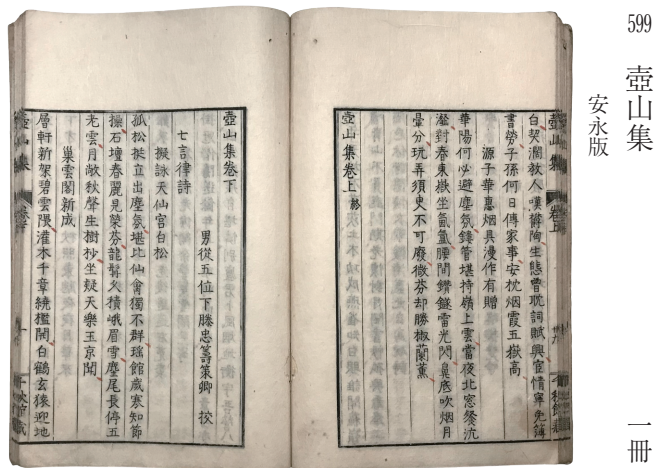 599
壺山集
安永版
一冊
白契濶教人嘆鬱陶生態曾耽詞賦興宦情寧免簿
書勞子孫何日傳家事安枕烟霞五嶽高
源子華惠烟具漫作有贈
華陽何必避塵氛鐵管堪持嶺上雲當夜北窓餐沆
瀣對春東嶽坐氤氳腰間鑽鐩雷光閃鼻底吹烟月
暈分玩弄須臾不可廢微芬却勝椒蘭薰
壺山集卷上終
壺山集卷下
男從五位下滕忠籌策卿 挍
七言律詩
擬詠天仙宮白松
孤松挺立出塵氛堪比仙禽獨不群瑤館歲寒知節
操石壇春麗見榮芬龍髯久積峨眉雪麈尾長停五
老雲月敞秋聲生樹杪坐疑天樂玉京聞
巢雲閣新成
層軒新架碧雲隈灌木千章繞檻開白鶴玄猿迎地